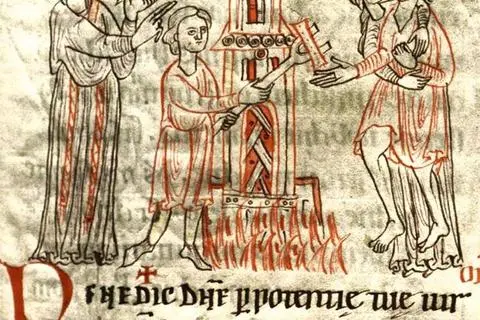 BENEDIC DÑE ꝑ potentię tue uir